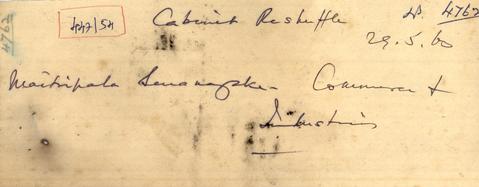 4762
442/54
Cabinet Reshuffle
4762
29.5.60
Maitripala Senanayake - Commerce &
Industries